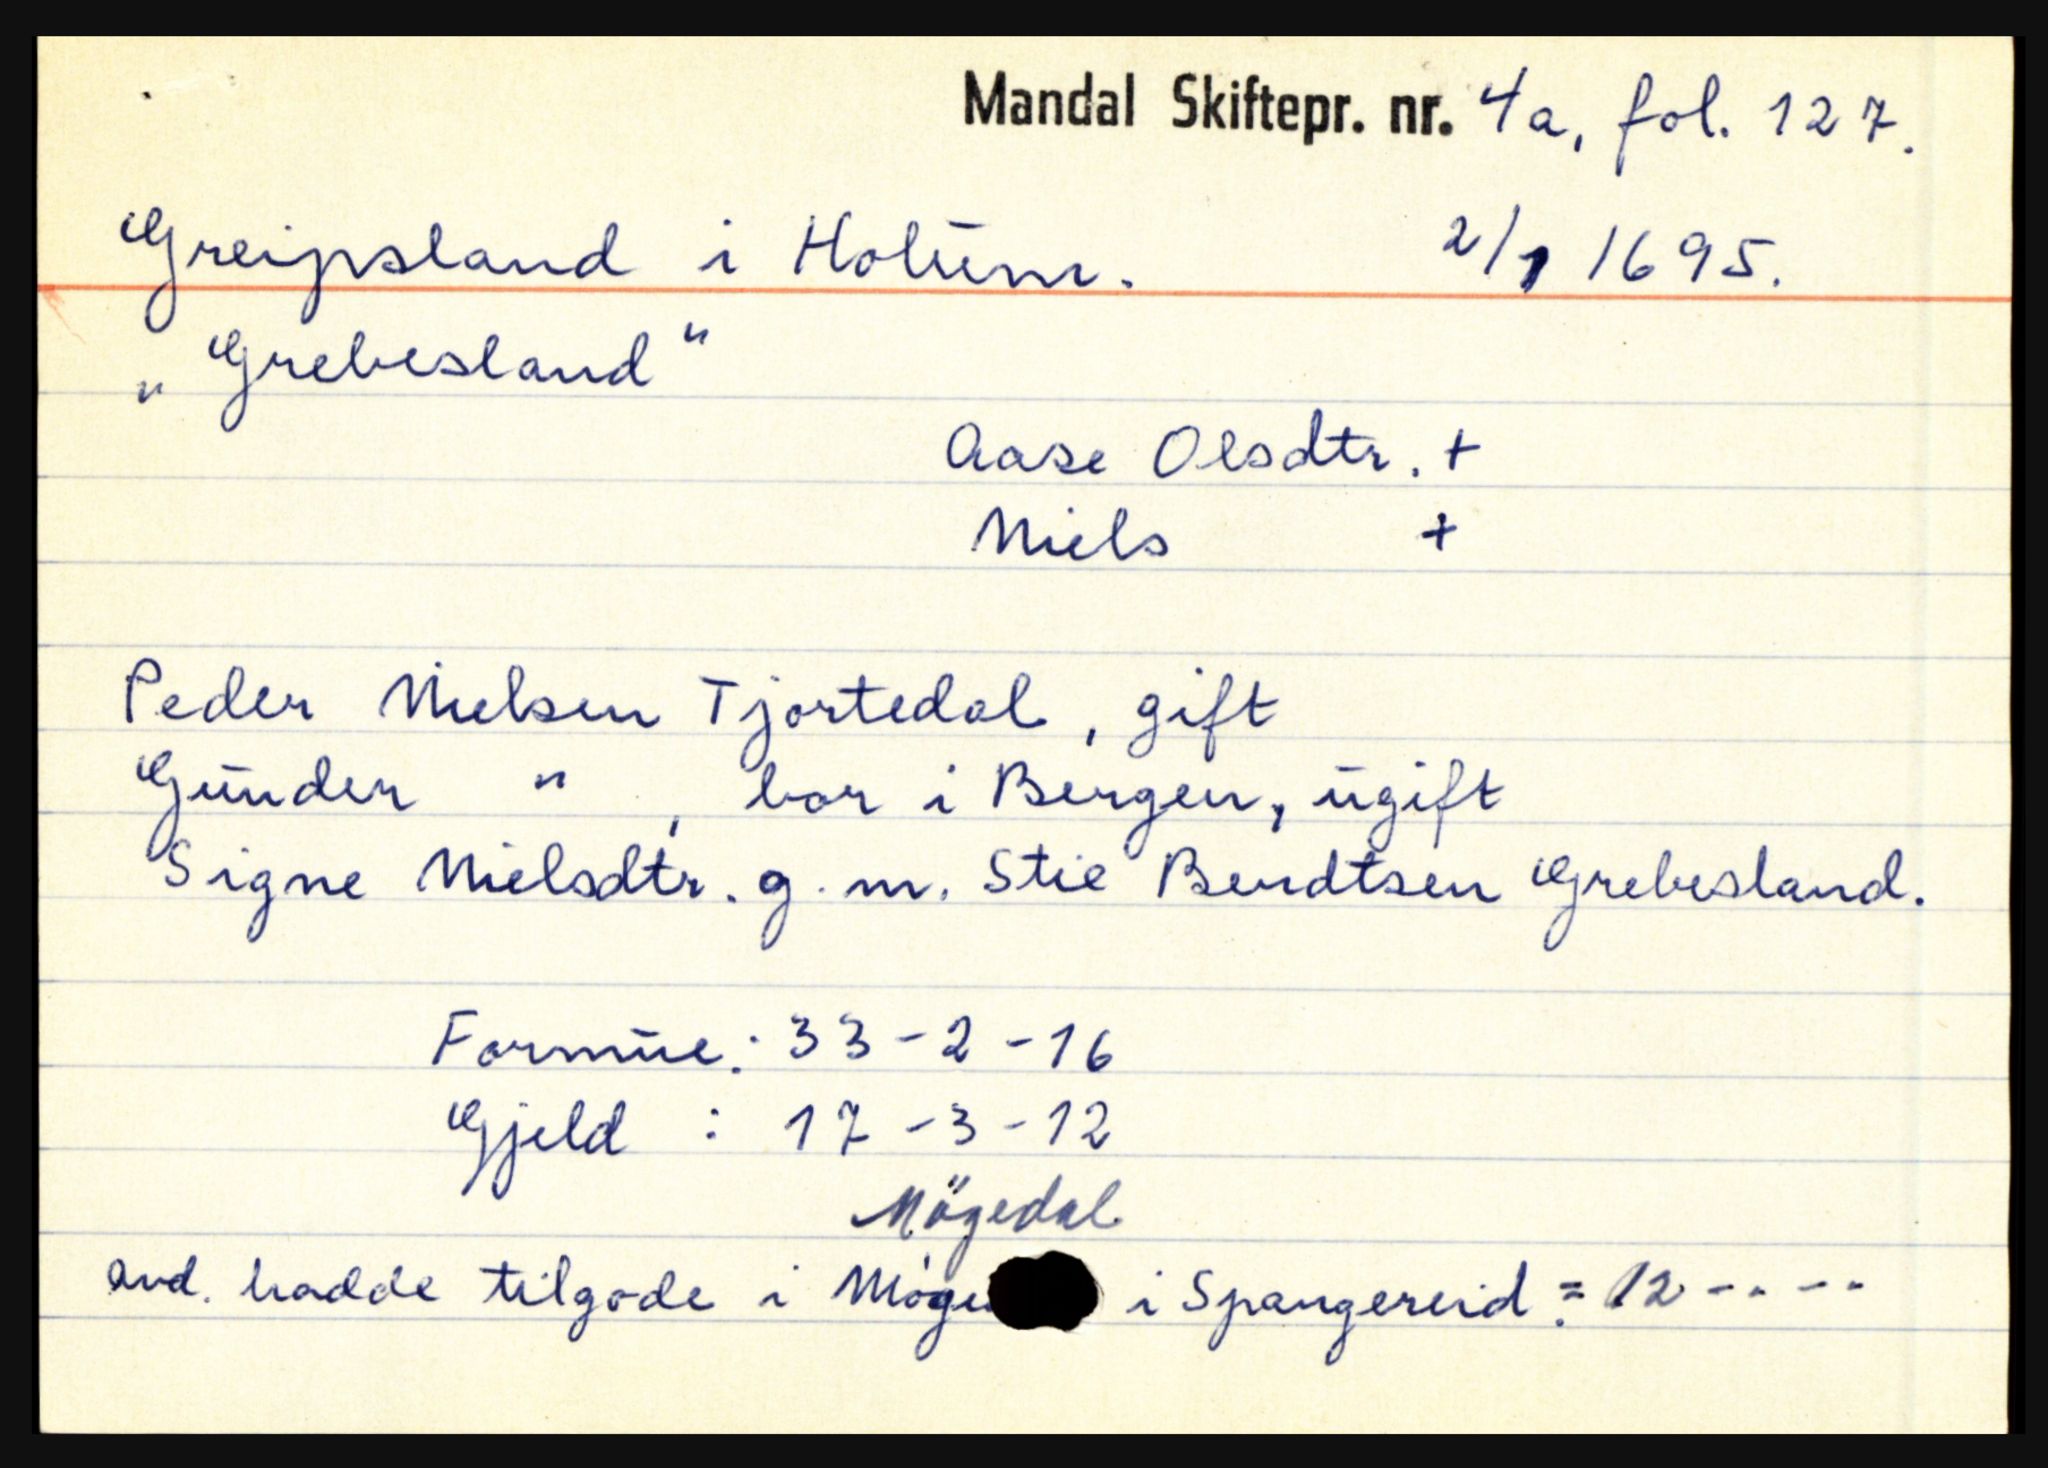 Mandal Skiftepr. nr. 4a, fol. 127.
Greipsland i Holum. 2/1 1695.
„Grebesland"
Aase Olsdtr. +
Niels +
Peder Nielsen Tjortedal, gift
Gunder " , bor i Bergen, ugift
Signe Nielsdtr. g.m. Stie Bendtsen Grebesland.
Formue: 33-2-16
Gjeld : 17-3-12
Mögedal
avd. hadde tilgode i i Spangereid: 12 -"- -"-